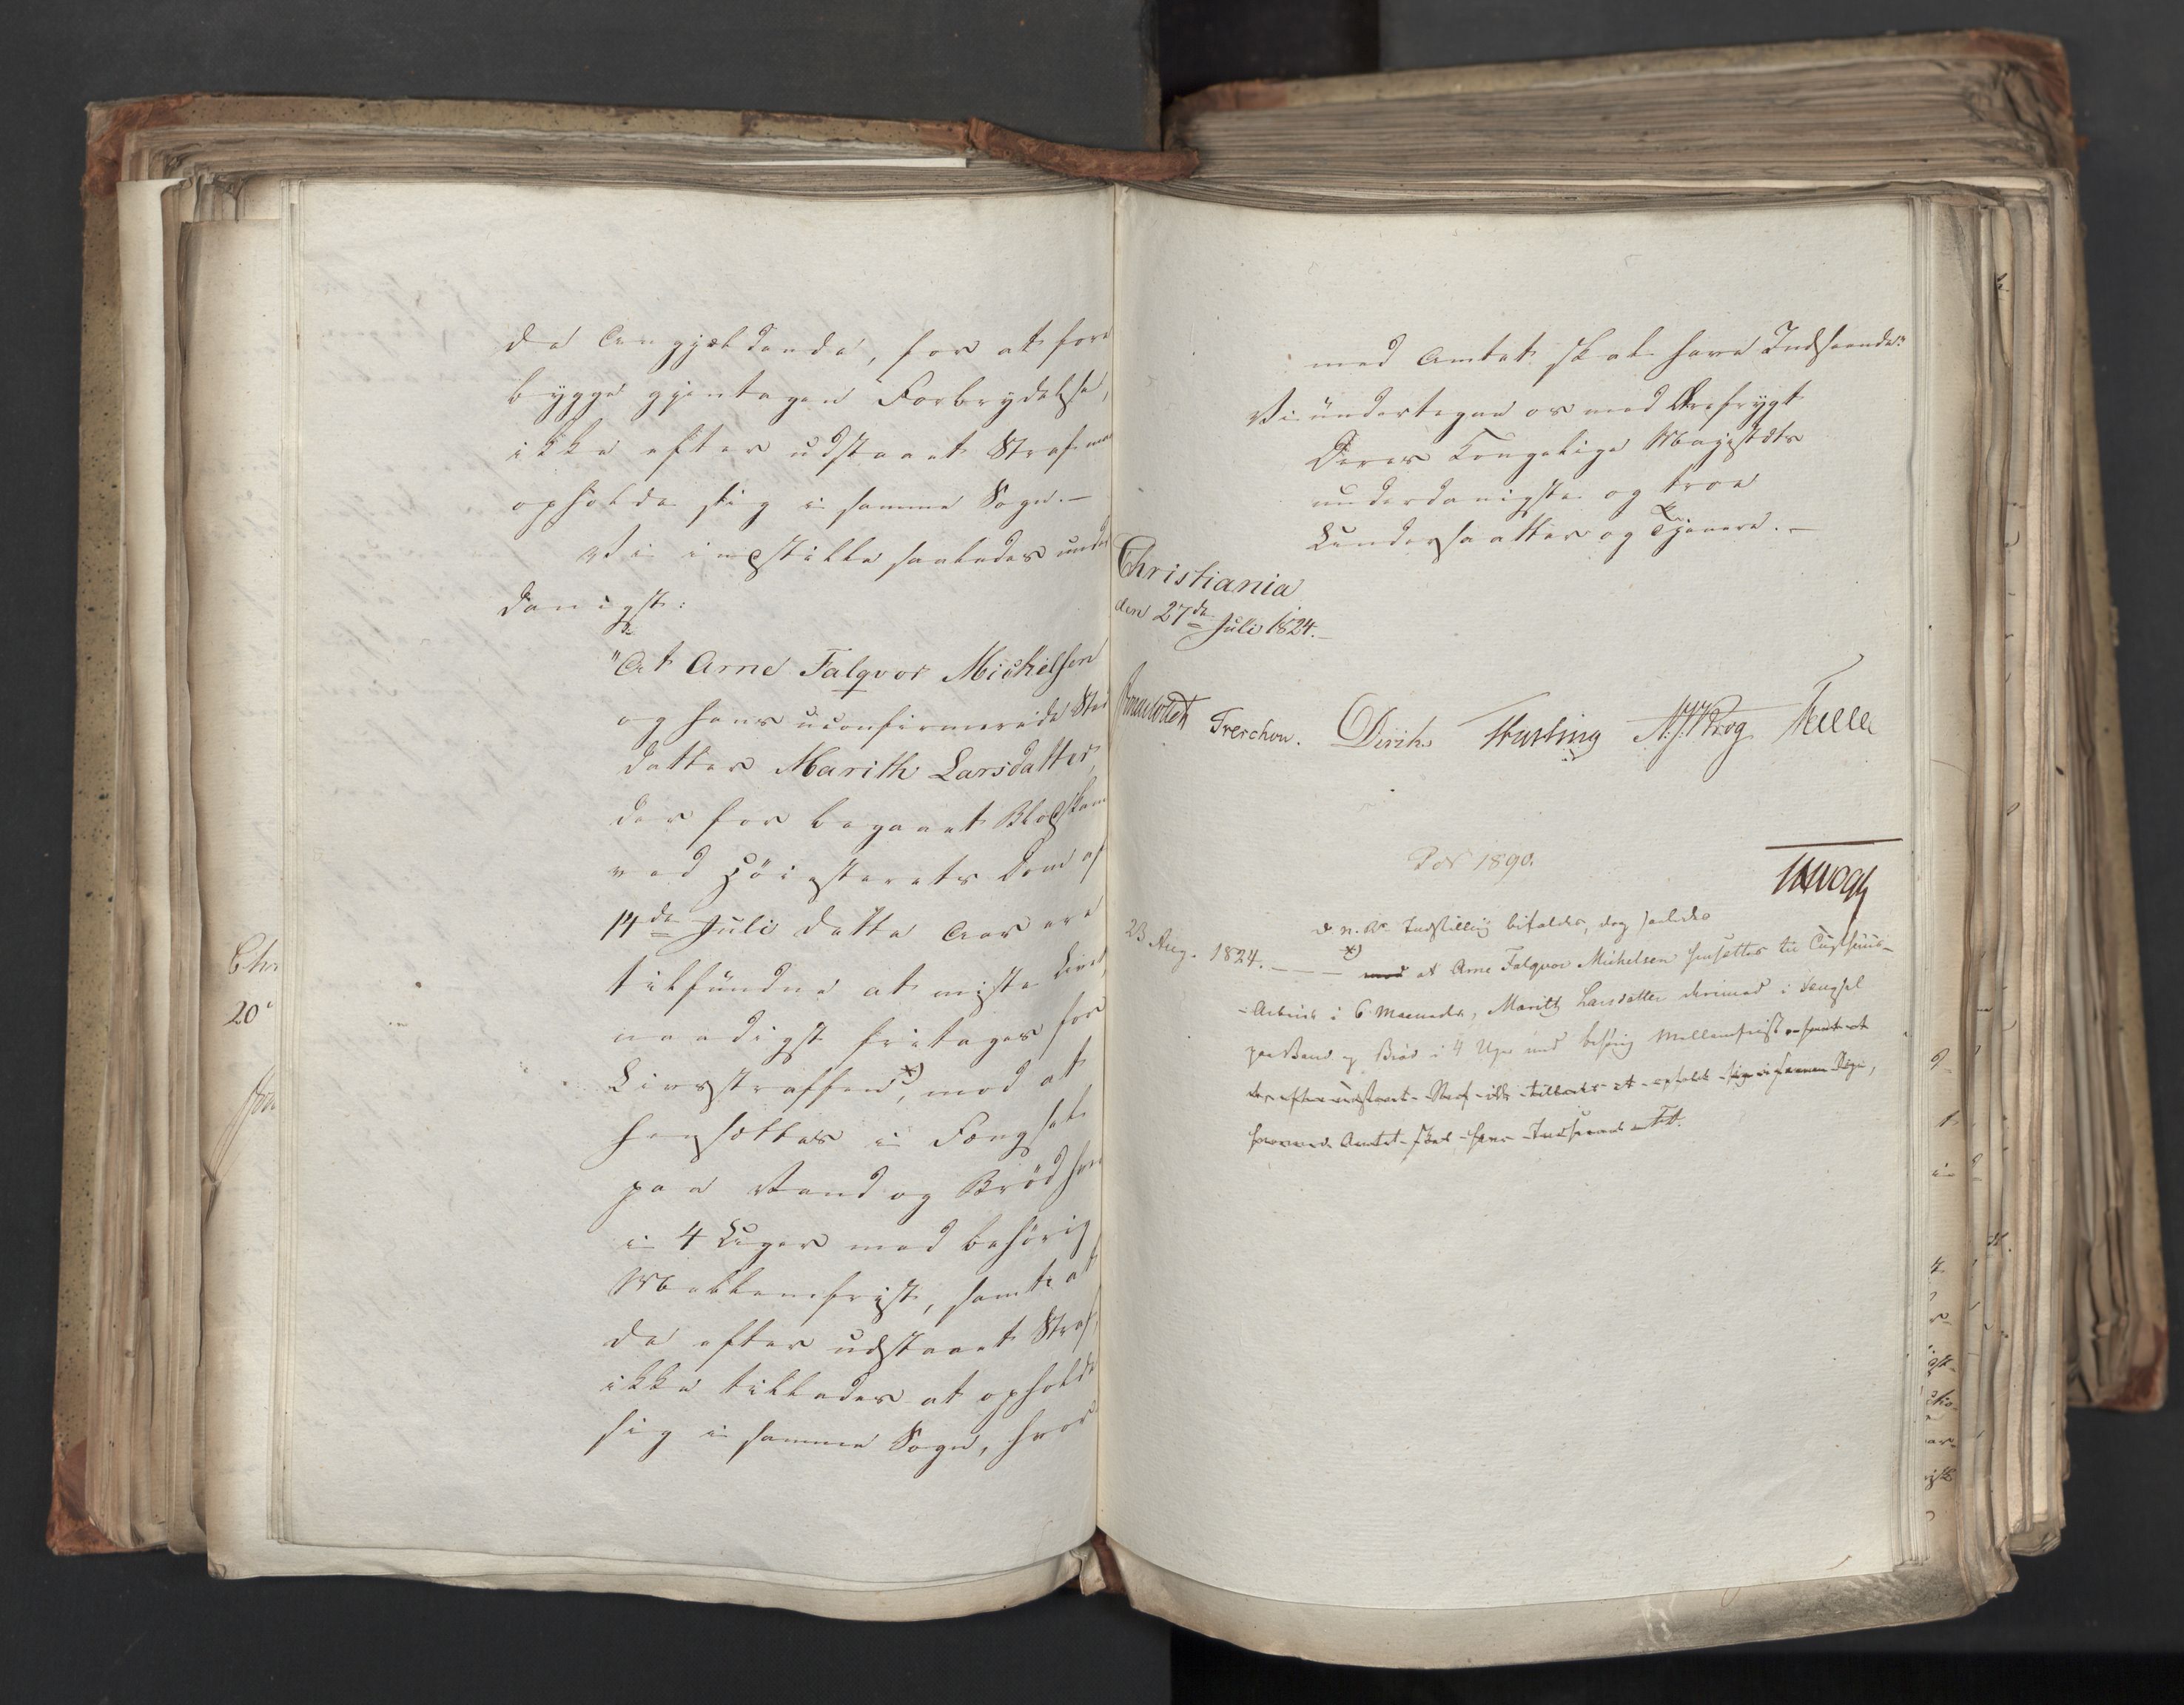 de Angjældende, for at fore
bygge gjentagen Forbrydelse,
ikke efter udstaaet Straf maa
opholde sig i samme Sogn.—
Vi indstille saaledes under
danigst:
"At Arne Falqvor Mickelsen
og hans uconfirmerede Sted
datter Marith Larsdatter,
der for begaaet Blodskam
ved Höiesterets Dom af
14de Juli dette Aar ere
tilfundne at miste Livet,
naadigst fritages for
Livsstraffen x), mod at
hensættes i Fængsel
paa Vand og Bröd hver
i 4 Uger med behörig
Mellemfrist, samt at
de efter udstaaet Straf,
ikke tillades at opholde
sig i samme Sogn, hvor
Chr
20
med Amtet skal have Indseende."
Vi undertegne os med Ærefrygt
Deres Kongelige Majestæts
underdanigste og troe
Undersaatter og Tjenere.—
Christiania
den 27de Juli 1824.—
Treschow. Diriks Krog
1890.
d. n. R. Indstilling bifaldes, dog saaledes
23 Aug. 1824. — — — x) med at Arne Falqvor Mickelsen hensættes til Tugthuus-
-Arbeide i 6 Maaneder, Marith Larsdatter derimod i Fængsel
paa Vand og Bröd i 4 Uger med behörig Mellemfrist og samt at
de efter udstaaet Straf ikke tillades at opholde sig i samme Sogn,
hvormed Amtet skal have Indseende